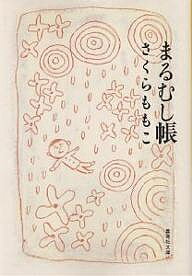 まるむし帳
さくらももこ
集英社文庫